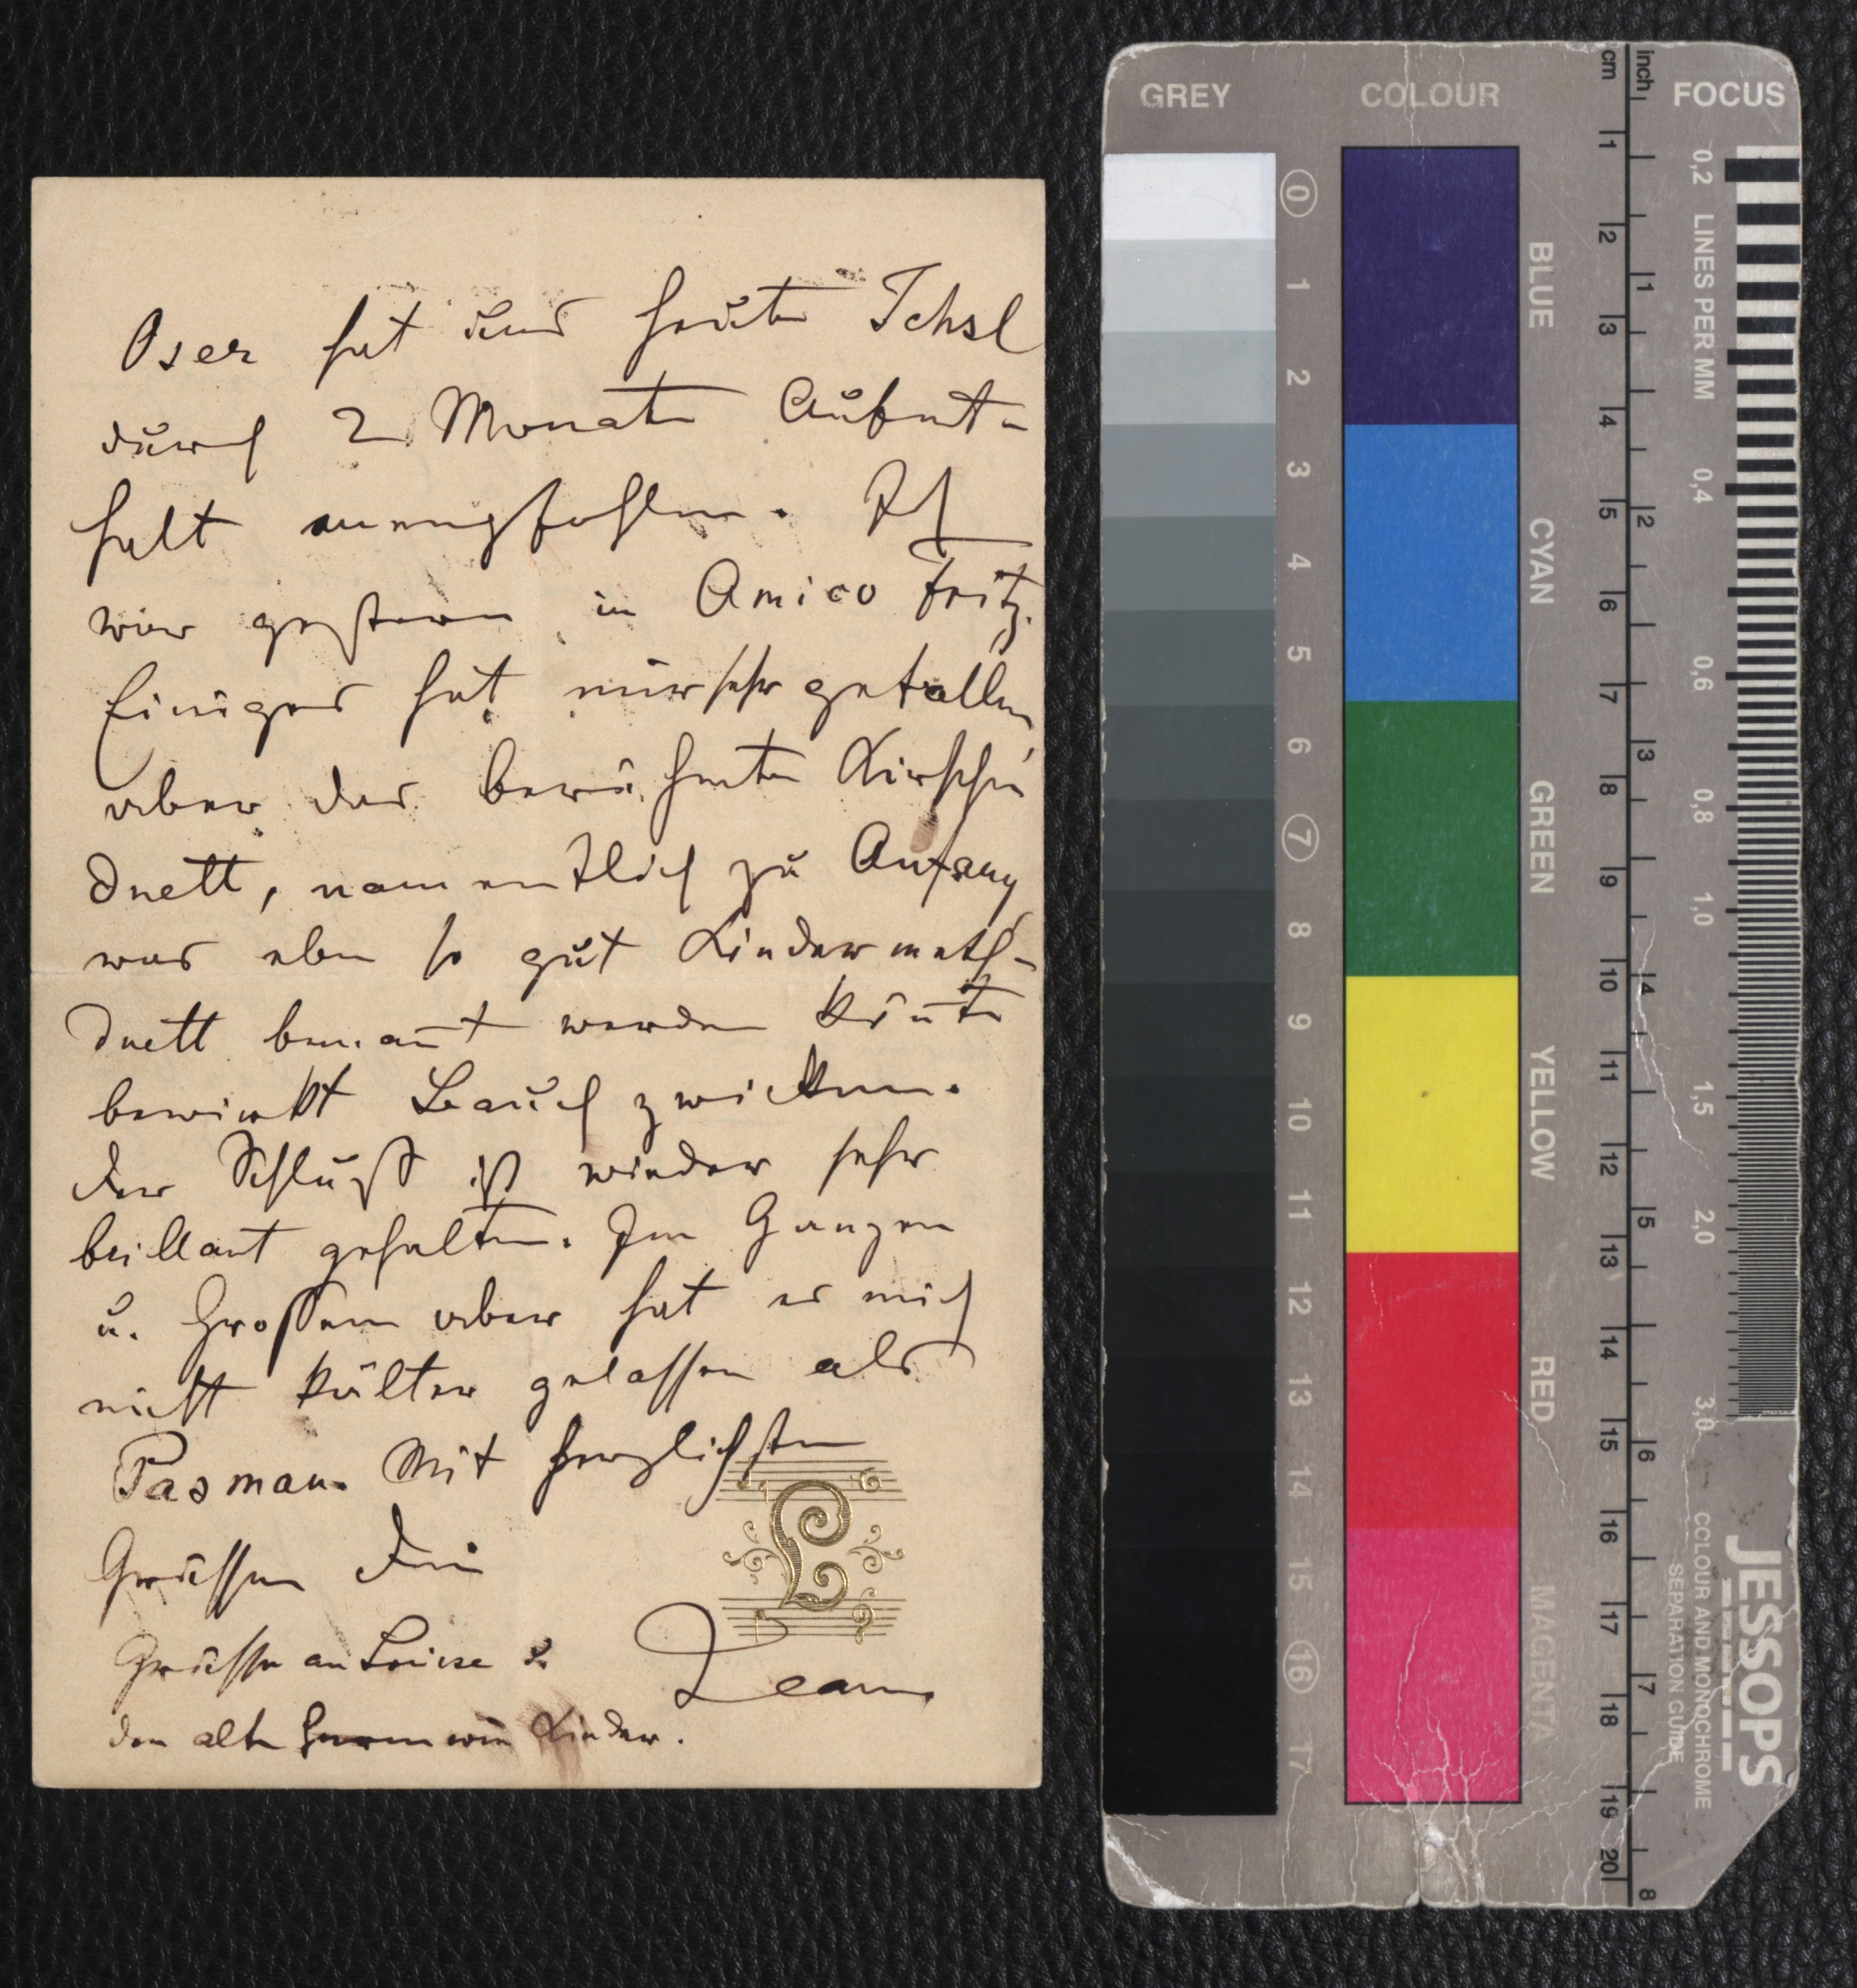 Oser hat uns heute Ischl
durch 2 Monate Aufent-
halt anempfohlen. Ich
war gestern in Amico Fritz.
Einiges hat mir sehr gefallen
aber das berühmte Kirschen
duett, namentlich zu Anfang
was eben so gut Kindermeth-
duett benan̄t werden kön̄te
bewirkt Bauchzwicken.
Der Schluß ist wieder sehr
brillant gehalten. Im Ganzen
u. Großen aber hat es mich
nicht kälter gelassen als
Pasman. Mit herzlichsten
Grüssen Dein
Jean
Grüsse an Louise u.
den alten wie Kinder.
L
GREY
COLOUR
cm
inch
FOCUS
0 1 2 3 4 5 6 7 8 9 10 11 12 13 14 15 16 17
BLUE
CYAN
GREEN
YELLOW
RED
MAGENTA
1 2 3 4 5 6 7 8 9 10 11 12 13 14 15 16 17 18 19 20
1 2 3 4 5 6 7 8
0,2 LINES PER MM 0,4 0,6 0,8 1,0 1,5 2,0 3,0
JESSOPS
COLOUR AND MONOCHROME
SEPARATION GUIDE